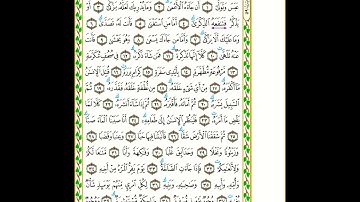 عَبَسَ وَتَوَلَّىٰٓ ١ أَن جَآءَهُ ٱلۡأَعۡمَىٰ ٢ وَمَا يُدۡرِيكَ لَعَلَّهُۥ يَزَّكَّىٰٓ ٣ أَوۡ
يَذَّكَّرُ فَتَنفَعَهُ ٱلذِّكۡرَىٰٓ ٤ أَمَّا مَنِ ٱسۡتَغۡنَىٰ ٥ فَأَنتَ لَهُۥ تَصَدَّىٰ ٦
وَمَا عَلَيۡكَ أَلَّا يَزَّكَّىٰ ٧ وَأَمَّا مَن جَآءَكَ يَسۡعَىٰ ٨ وَهُوَ يَخۡشَىٰ ٩ فَأَنتَ
عَنۡهُ تَلَهَّىٰ ١٠ كَلَّآ إِنَّهَا تَذۡكِرَةٌ ١١ فَمَن شَآءَ ذَكَرَهُۥ ١٢ فِي صُحُفٍ مُّكَرَّمَةٍ ١٣
مَّرۡفُوعَةٍ مُّطَهَّرَةٍ ١٤ بِأَيۡدِي سَفَرَةٍ ١٥ كِرَامٍ بَرَرَةٍ ١٦ قُتِلَ ٱلۡإِنسَٰنُ
مَآ أَكۡفَرَهُۥ ١٧ مِنۡ أَيِّ شَيۡءٍ خَلَقَهُۥ ١٨ مِن نُّطۡفَةٍ خَلَقَهُۥ فَقَدَّرَهُۥ ١٩ ثُمَّ
ٱلسَّبِيلَ يَسَّرَهُۥ ٢٠ ثُمَّ أَمَاتَهُۥ فَأَقۡبَرَهُۥ ٢١ ثُمَّ إِذَا شَآءَ أَنشَرَهُۥ ٢٢ كَلَّا لَمَّا
يَقۡضِ مَآ أَمَرَهُۥ ٢٣ فَلۡيَنظُرِ ٱلۡإِنسَٰنُ إِلَىٰ طَعَامِهِۦٓ ٢٤ أَنَّا صَبَبۡنَا ٱلۡمَآءَ صَبًّا
٢٥ ثُمَّ شَقَقۡنَا ٱلۡأَرۡضَ شَقًّا ٢٦ فَأَنۢبَتۡنَا فِيهَا حَبًّا ٢٧ وَعِنَبًا وَقَضۡبًا ٢٨
وَزَيۡتُونًا وَنَخۡلًا ٢٩ وَحَدَآئِقَ غُلۡبًا ٣٠ وَفَٰكِهَةً وَأَبًّا ٣١ مَّتَٰعًا لَّكُمۡ
وَلِأَنۡعَٰمِكُمۡ ٣٢ فَإِذَا جَآءَتِ ٱلصَّآخَّةُ ٣٣ يَوۡمَ يَفِرُّ ٱلۡمَرۡءُ مِنۡ أَخِيهِ ٣٤
وَأُمِّهِۦ وَأَبِيهِ ٣٥ وَصَٰحِبَتِهِۦ وَبَنِيهِ ٣٦ لِكُلِّ ٱمۡرِيٕٖ مِّنۡهُمۡ يَوۡمَئِذٍ شَأۡنٌ